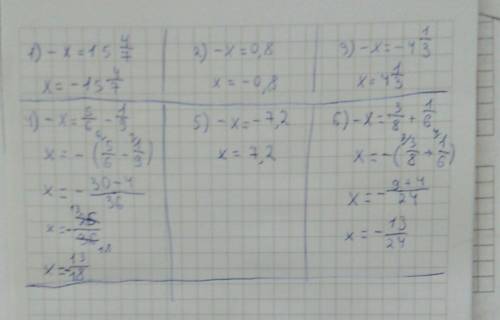 1) -x = 15 4/7
x = -15 4/7
2) -x = 0,8
x = -0,8
3) -x = -4 1/3
x = 4 1/3
1) -x = 5/6 - 1/9
x = -(5/6 - 1/9)
x = - 30-4/36
x = - 26/36 13 18
x = - 13/18
5) -x = -7,2
x = 7,2
6) -x = 3/8 + 1/6
x = -(3/8 + 1/6)
x = - 9+4/24
x = - 13/24